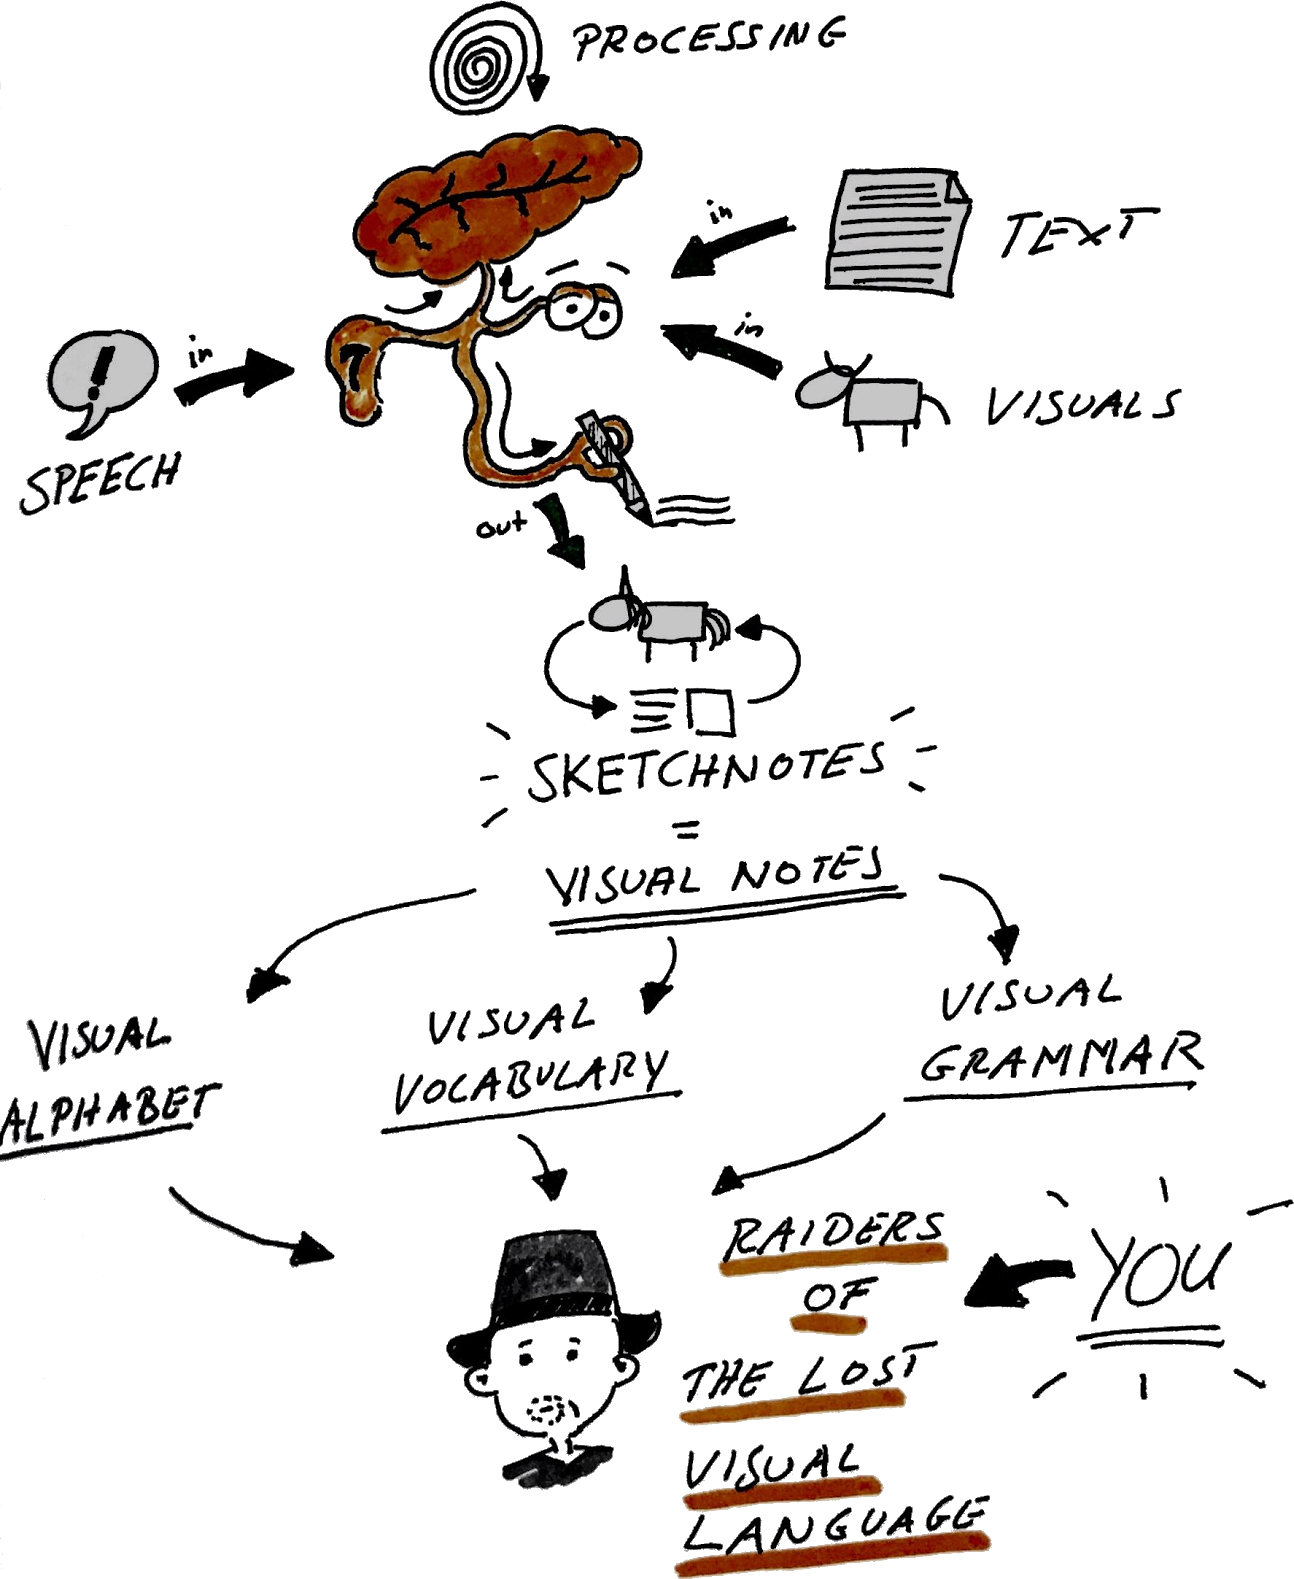 PROCESSING
in
TEXT
in
VISUALS
in
!
SPEECH
out
SKETCHNOTES
=
VISUAL NOTES
VISUAL
ALPHABET
VISUAL
VOCABULARY
VISUAL
GRAMMAR
RAIDERS
OF
THE LOST
VISUAL
LANGUAGE
YOU